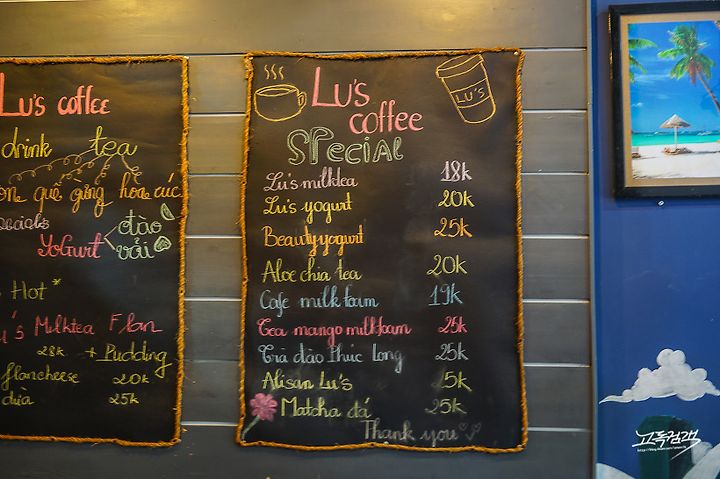 Lu's coffee
drink tea
quế gừng hoa cúc
YoGurt
đào
vải
Hot*
Milktea Flan
28k + Pudding
flancheese 20k
dừa 25k
Lu's
coffee
LU'S
SPecial
Lu's milktea 18k
Lu's yogurt 20k
Beauty yogurt 25k
Aloe chia tea 20k
Cafe milk foam 19k
Tea mango milkfoam 25k
Trà đào Phúc Long 25k
Alisan Lu's 15k
Matcha đá 25k
Thank you
고독검객